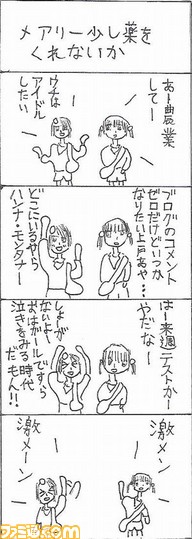 メアリー少し薬を
くれないか
あー農業
してー
ウチは
アイドル
したい
ブログのコメント
ゼロだけどいつか
なりたい上戸あや…
どこにいるやら
ハンナ・モンタナー
はー来週テストかー
やだなー
しょうが
ないよー
おはガールですら
泣きをみる時代
だもん!!
激メーン
激メーン
ファミ通.com